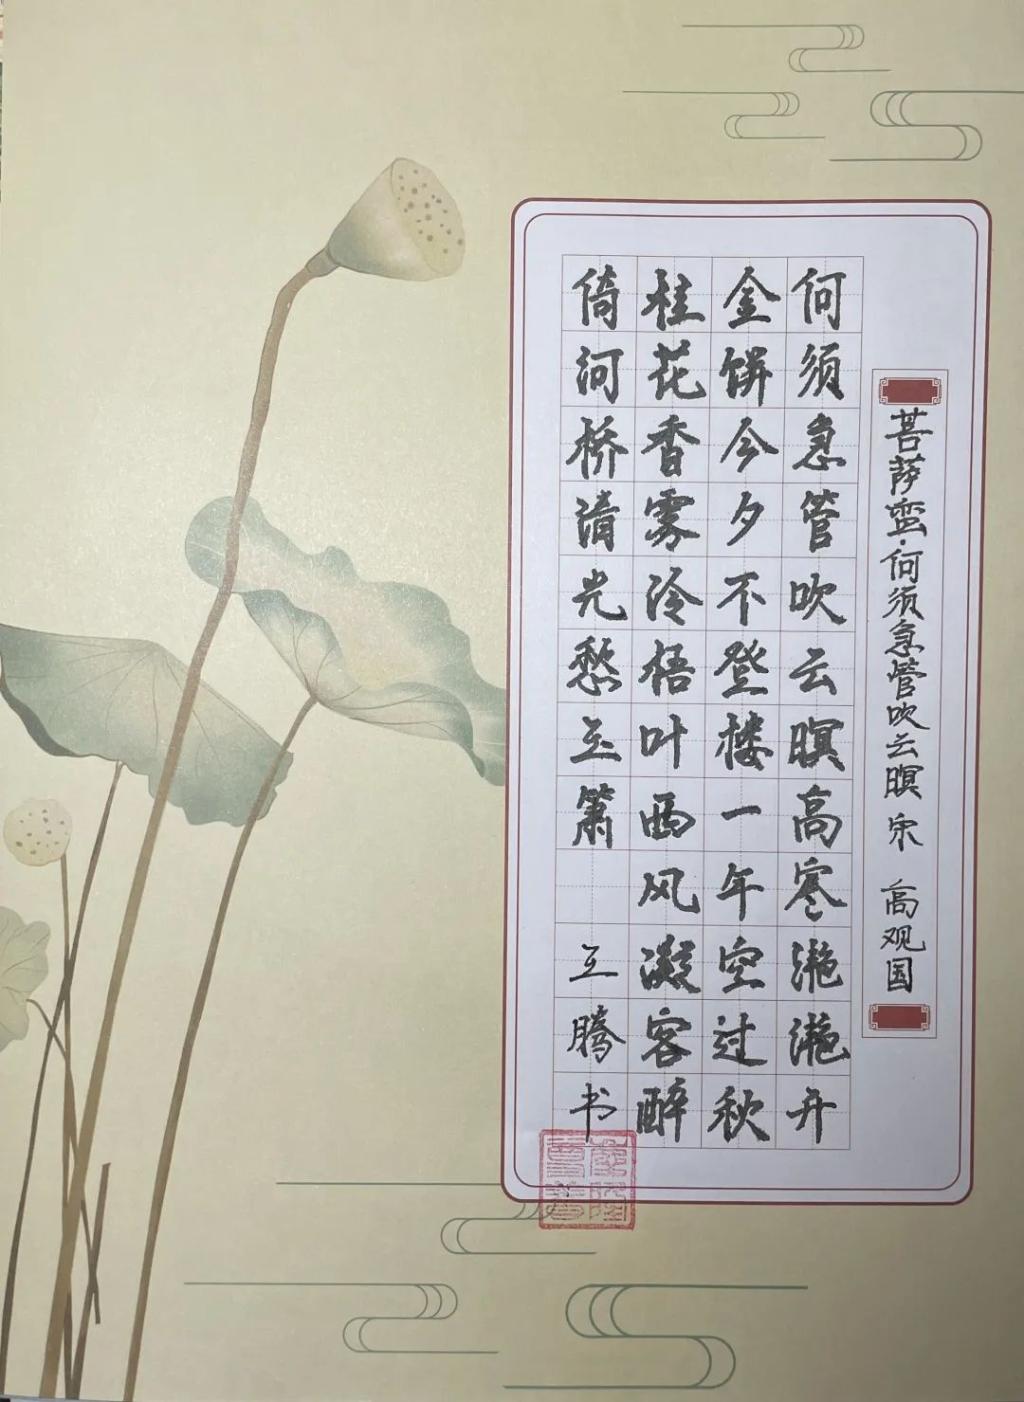 菩萨蛮·何须急管吹云暝 宋 高观国
何须急管吹云暝高寒滟滟开
金饼今夕不登楼一年空过秋
桂花香雾冷梧叶西风客醉
倚河桥清光愁玉箫 王腾书